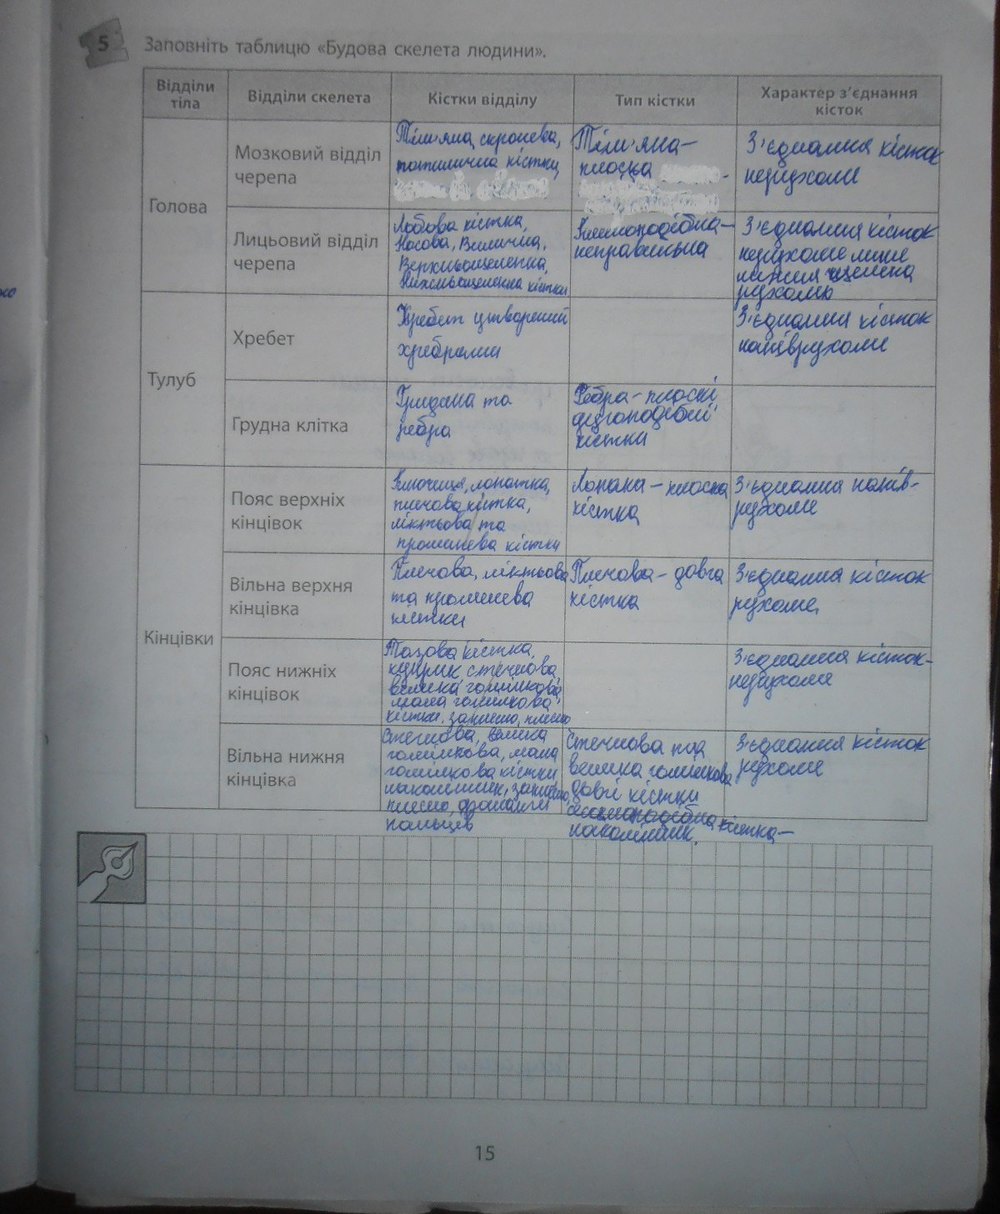 5 Заповніть таблицю «Будова скелета людини».
Відділи тіла
Відділи скелета
Кістки відділу
Тип кістки
Характер з'єднання кісток
Голова
Мозковий відділ
черепа
Тім'яна, скронева,
потилична кістки,
Тім'яна—
плоска
З'єднання кісток
нерухоме
Лицьовий відділ
черепа
Лобова кістка,
Носова, Вилична,
Верхньощелепна,
Нижньощелепна кістки
Клиноподібна—
неправильна
З'єднання кісток
нерухоме лише
нижня щелепа
рухомо
Тулуб
Хребет
Хребет утворений
хребцями
З'єднання кісток
напіврухоме
Грудна клітка
Грудина та
ребра
Ребра - плоскі
дугоподібні
кістки
Кінцівки
Пояс верхніх
кінцівок
Ключиця, лопатка,
плечова кістка,
ліктьова та
променева кістки
Лопатка — плоска
кістка
З'єднання напів-
рухоме
Вільна верхня
кінцівка
Плечова, ліктьова
та променева
кістки
Плечова - довга
кістка
З'єднання кісток
рухоме,
Пояс нижніх
кінцівок
Тазова кістка,
куприк стегнова
велика гомілкова,
мала гомілкова
кістки, заплесно, плесно
З'єднання кісток-
нерухоме
Вільна нижня
кінцівка
Стегнова, велика
гомілкова, мала
гомілкова кістки
наколінник, заплесно,
плесно, фаланги
пальців
Стегнова та
велика гомілкова
довгі кістки
сесамоподібна кістка—
наколінник.
З'єднання кісток
рухоме
15